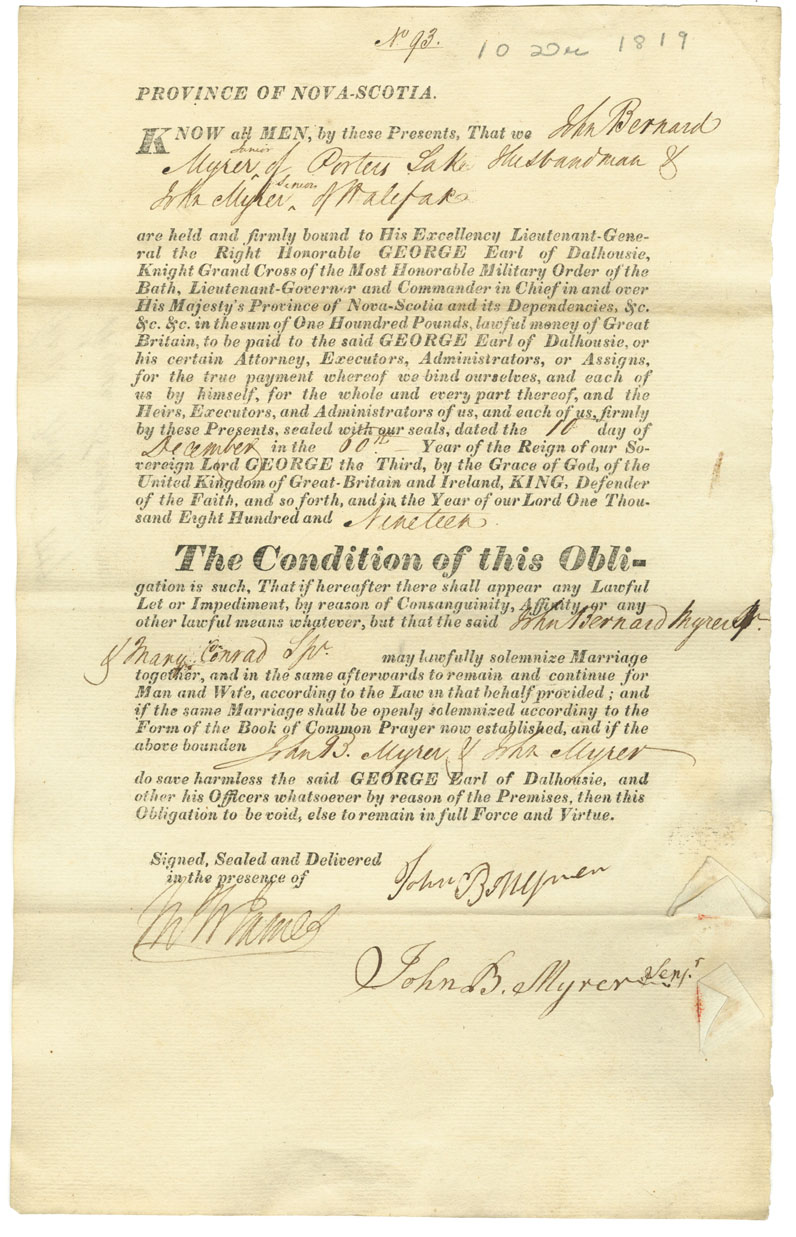 No 93.
10 Dec 1819
PROVINCE OF NOVA-SCOTIA.
KNOW all MEN, by these Presents, That we John Bernard
Junior
Myrer ‸ of Porters Lake Husbandman &
Senior
John Myrer ‸ of Halifax
are held and firmly bound to His Excellency Lieutenant-Gene-
ral the Right Honorable GEORGE Earl of Dalhousie,
Knight Grand Cross of the Most Honorable Military Order of the
Bath, Lieutenant-Governor and Commander in Chief in and over
His Majesty's Province of Nova-Scotia and its Dependencies, &c.
&c. &c. in the sum of One Houndred Pounds, lawful money of Great
Britain, to be paid to the said GEORGE Earl of Dalhousie, or
his certain Attorney, Executors, Administrators, or Assigns,
for the true payment whereof we bind ourselves, and each of
us by himself, for the whole and every part thereof, and the
Heirs, Executors, and Administrators of us, and each of us, firmly
by these Presents, sealed with our seals, dated the 10 day of
December in the 60th Year of the Reign of our So-
vereign Lord GEORGE the Third, by the Grace of God, of the
United Kingdom of Great-Britain and Ireland, KING, Defender
of the Faith, and so forth, and in the Year of our Lord One Thou-
sand Eight Hundred and Nineteen.
The Condition of this Obli-
gation is such, That if hereafter there shall appear any Lawful
Let or Impediment, by reason of Consanguinity, Affinity or any
other lawful means whatever, but that the said John Bernard Myrer Jr.
& Mary Conrad Spr. may lawfully solemnize Marriage
together, and in the same afterwards to remain and continue for
Man and Wife, according to the Law in that behalf provided; and
if the same Marriage shall be openly solemnized accordiny to the
Form of the Book of Common Prayer now established, and if the
above bounden John B. Myrer & John Myrer
do save harmless the said GEORGE Earl of Dalhousie, and
other his Officers whatsoever by reason of the Premises, then this
Obligation to be void, else to remain in full Force and Virtue.
Signed, Sealed and Delivered
in the presence of
John B Myrer
James
John B. Myrer Senr.